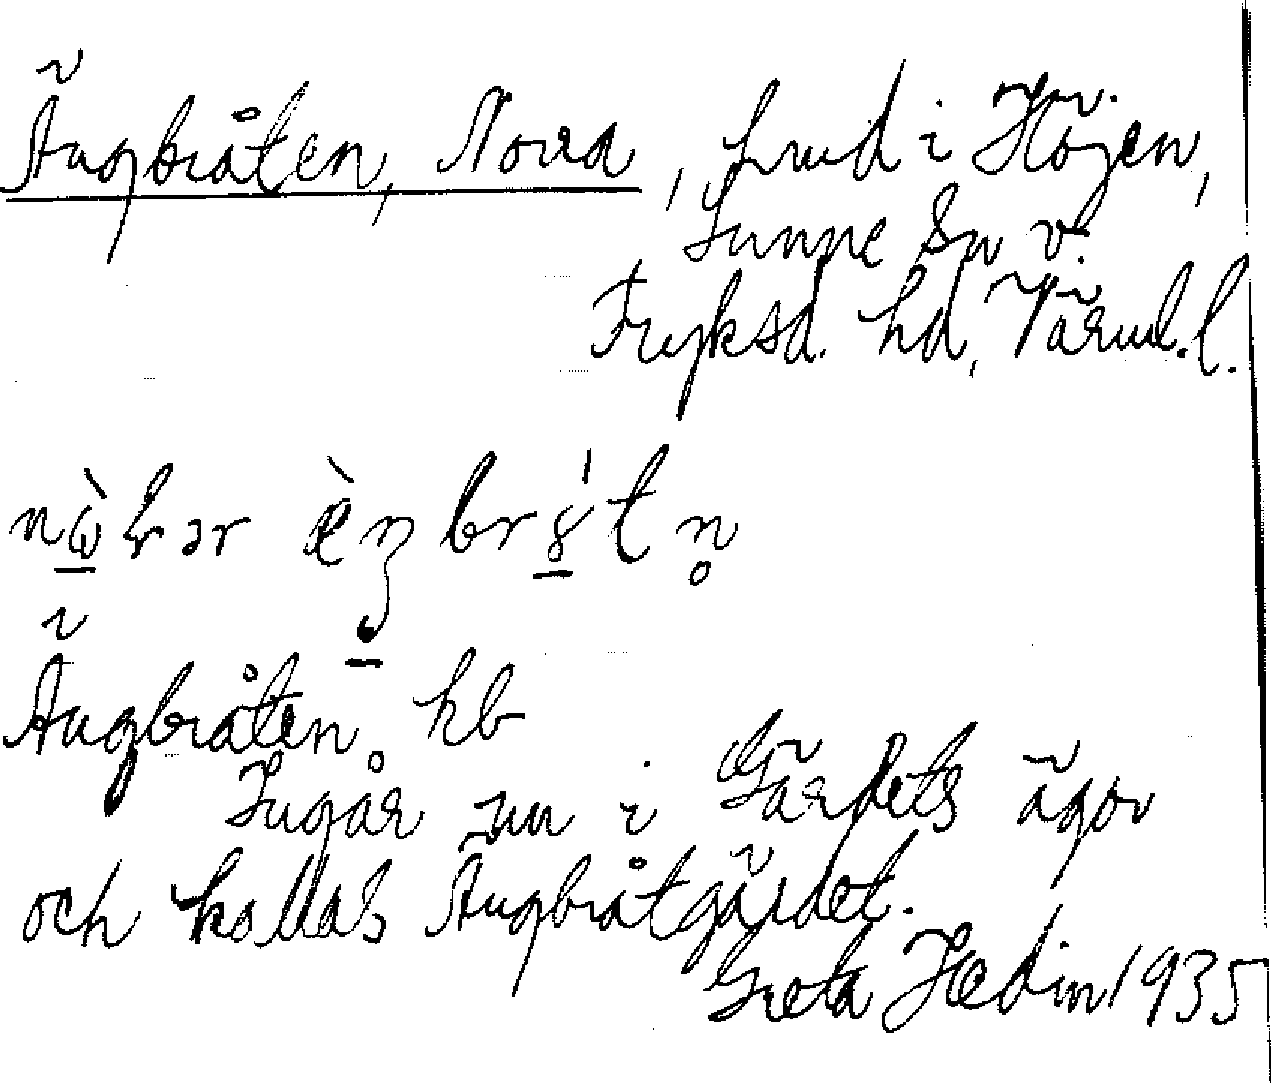 Ängbråten, Norra, hmd i Höjen,
Sunne Sn v.
Fryksd. hd, Värml. l.
Ängbråten. kb
Ingår nu i Gärdets ägor
och kallas Ängbråtgärdet.
Greta Hedin 1935